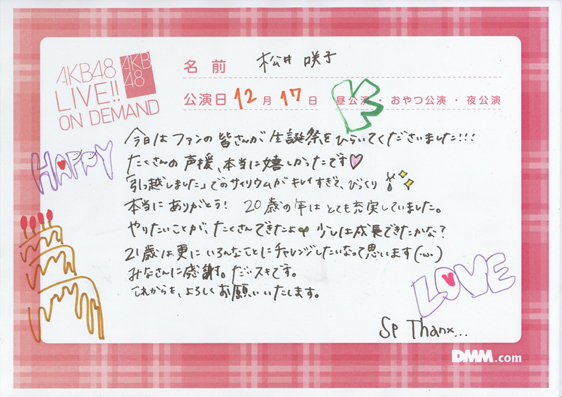 AKB48
LIVE!!
ON DEMAND
AKB
48
名前 松井 咲子
公演日 12月17日 昼公演・おやつ公演・夜公演
今日はファンの皆さんが生誕祭をひらいてくださいました!!!
たくさんの声援、本当に嬉しかったです♡
「引越しました」でのサイリウムがキレイすぎて、びっくり
本当にありがとう! 20歳の年はとても充実していました。
やりたいことが、たくさんできたよ 少しは成長できたかな?
21歳は更にいろんなことにチャレンジしたいなって思います(・ω・)
みなさんに感謝。だいスキです。
これからも、よろしくお願いいたします。
HAPPY
LOVE
Sp Thanx...
DMM.com